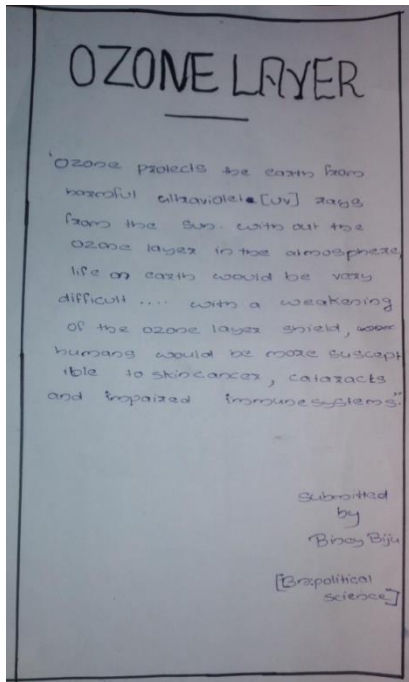 OZONE LAYER
"Ozone protects the earth from
harmful ultraviolet [UV] rays
from the sun. with out the
Ozone layer in the atmosphere,
life on earth would be very
difficult .... with a weakening
of the ozone layer shield,
humans would be more suscept
ible to skin cancer, cataracts
and impaired immune systems."
Submitted
by
Binoy Biju
political
science]